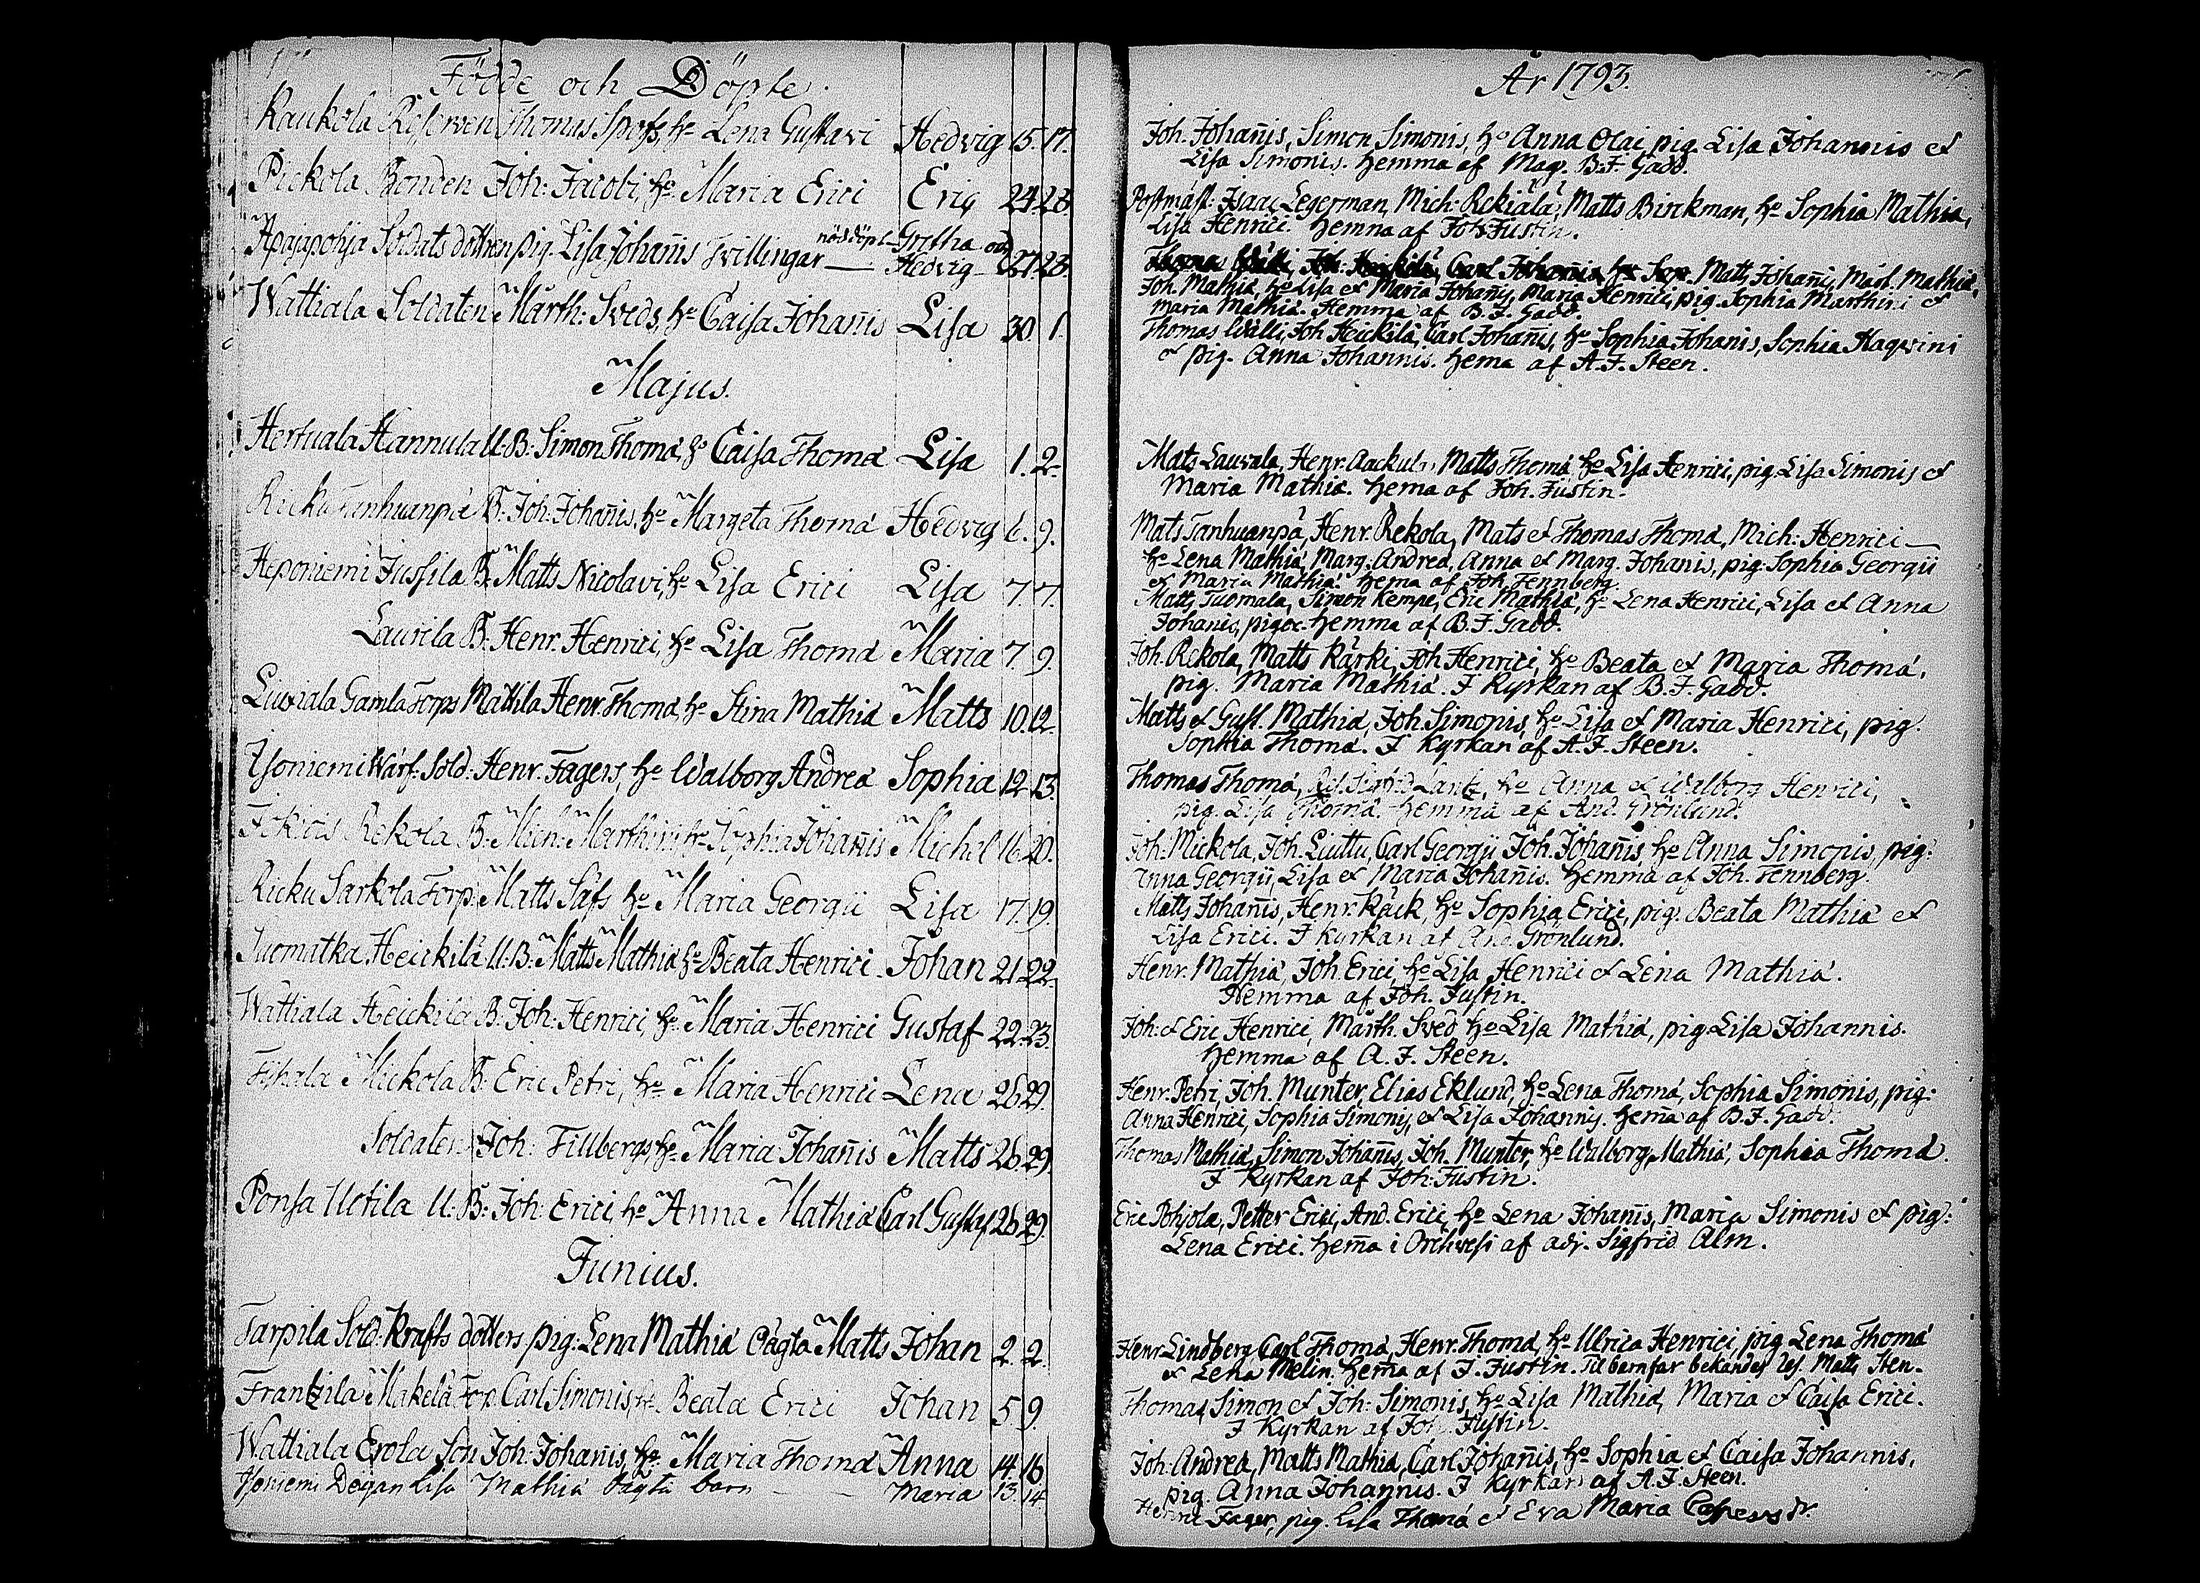 Födde och Döpte.
Raukola Reserven Thomas Spofs, ho Lena Gustavi Hedvig 15. 17.
Pickola Bonden Joh: Jacobi, ho Maria Erici Eric 24. 28
Apajapohja Soldats dottren pig. Lisa Johañis Tvillingar nöddöpt Gretha och
Hedvig 27. 28.
Wattiala Soldaten Marth: Sveds, ho Caisa Johañis Lisa 30. 1.
Majus.
Hertuala Hannula U. B: Simon Thomæ, ho Caisa Thomæ Lisa 1. 2.
Ricku Tanhuanpä B: Joh: Johañis, ho Margeta Thomæ Hedvig 6. 9.
Heponiemi Jussila B: Matts Nicolavi, ho Lisa Erici Lisa 7. 7.
Laurila B: Henr. Henrici, ho Lisa Thomæ Maria 7. 9.
Liuxiala Gamla Torps Mattila Henr. Thomæ, ho Stina Mathiæ Matts 10. 12.
Isoniemi Wärf. Sold. Henr. Fagers, ho Walborg Andreæ Sophia 12. 13.
Rekola B: Mich: Marthini, ho Sophia Johañis Michel 16. 20.
Ricku Sarkola Torp: Matts Säfs ho Maria Georgii Lisa 17. 19.
Tuomatka Heickilä U. B: Matts Mathiæ ho Beata Henrici Johan 21. 22.
Wattiala Heickilä B: Joh: Henrici, ho Maria Henrici Gustaf 22. 23.
Tihala Mickola B: Eric Petri, ho Maria Henrici Lena 26. 29.
Soldaten Joh: Tillbergs, ho Maria Johañis Matts 26. 29.
Ponsa Uotila U. B: Joh: Erici, ho Anna Mathiæ Carl Gustaf 26. 29.
Junius.
Tarpila Sold: Krafts dotters pig: Lena Mathiæ Oägta Matts Johan 2. 2.
Frantzila Mäkelä Torp. Carl Simonis, ho Beata Erici Johan 5. 9.
Wattiala Erola Son Joh: Johañis, ho Maria Thomæ Anna 14. 16
Isoniemi Dejan Lisa Mathiæ Oägta barn Maria 13. 14
År 1793.
Joh. Johañis, Simon Simonis, ho Anna Olai, pig. Lisa Johannis et
Lisa Simonis. hemma af Mag. B. F. Gadd.
Postmäst: Isaac Legerman, Mich: Rekiälä, Matts Birckman, ho Sophia Mathiæ,
Lisa Henrici. hemma af Joh. Justin.
Matts Johañis, Mart. Mathiæ,
Joh. Mathiæ, ho Lisa et Maria Johañis, Maria Henrici, pig. Sophia Marthini et
Maria Mathiæ. Hemma af B. F. Gadd.
Thomas Wälli, Joh Heickilä, Carl Johañis, ho Sophia Johanis, Sophia Hagerini
et pig. Anna Johannis. hema af A. F. Steen.
Mats Laurala, Henr. Matts Thomæ ho Lisa Henrici, pig. Lisa Simonis et
Maria Mathiæ. hema af Joh. Justin.
Mats Tanhuanpä, Henr. Rekola, Mats et Thomas Thomæ, Mich: Henrici
ho Lena Mathiæ, Marg. Andreæ, Anna et Marg. Johanis, pig. Sophia Georgii
et Maria Mathiæ. hema af Joh. Tennberg.
Matts Tuomala, Simon Kempe, Eric Mathiæ, ho Lena Henrici, Lisa et Anna
Johanis, pigor. hemma af B. F. Gadd.
Joh. Rekola, Matts Kärki, Joh Henrici, ho Beata et Maria Thomæ,
pig. Maria Mathiæ. I Kyrkan af B. F. Gadd.
Matts et Gust. Mathiæ, Joh. Simonis, ho Lisa et Maria Henrici, pig.
Sophia Thomæ. I Kyrkan af A. F. Steen.
Thomas Thomæ, ho Anna et Walborg Henrici,
pig. Lisa Thomæ. hemma af And. Grönlund.
Joh. Mickola, Joh. Liuttu, Carl Georgii Joh. Johañis, ho Anna Simonis, pig:
Anna Georgii, Lisa et Maria Johañis. hemma af Joh. Tennberg.
Matts Johañis, Henr. Räck, ho Sophia Erici, pig. Beata Mathiæ et
Lisa Erici. I Kyrkan af And. Grönlund.
Henr. Mathiæ, Joh. Erici, ho Lisa Henrici et Lena Mathiæ.
Hemma af Joh. Justin.
Joh. et Eric Henrici, Marth. Sved ho Lisa Mathiæ, pig Lisa Johannis.
hemma af A. F. Steen.
Henr. Petri, Joh. Munter, Elias Eklund, ho Lena Thomæ, Sophia Simonis, pig:
Anna Henrici, Sophia Simonis, et Lisa Johannis. hema af B. F. Gadd.
Thomas Mathiæ, Simon Johañis, Joh. Munter, ho Walborg Mathiæ, Sophia Thomæ.
I Kyrkan af Joh. Justin.
Eric Pohjola, Petter Erici, And. Erici, ho Lena Johañis, Maria Simonis et pig:
Lena Erici. hema i Orihvesi af adj. Sigfrid Alm.
Henr. Lindberg, Carl Thomæ, Henr. Thomæ, ho Ulrica Henrici, pig Lena Thomæ
et Lena Melin. hema af J. Justin. Til barnfar bekandes Res. Matts Sten.
Thomas, Simon et Joh: Simonis, ho Lisa Mathiæ, Maria et Caisa Erici.
I Kyrkan af Joh. Justin.
Joh: Andreæ, Matts Mathiæ, Carl Johañis, ho Sophia et Caisa Johannis,
pig. Anna Johannis. I Kyrkan af A. F. Steen.
Henric Fager, pig. Lisa Thomæ et Eva Maria Caspersdr.